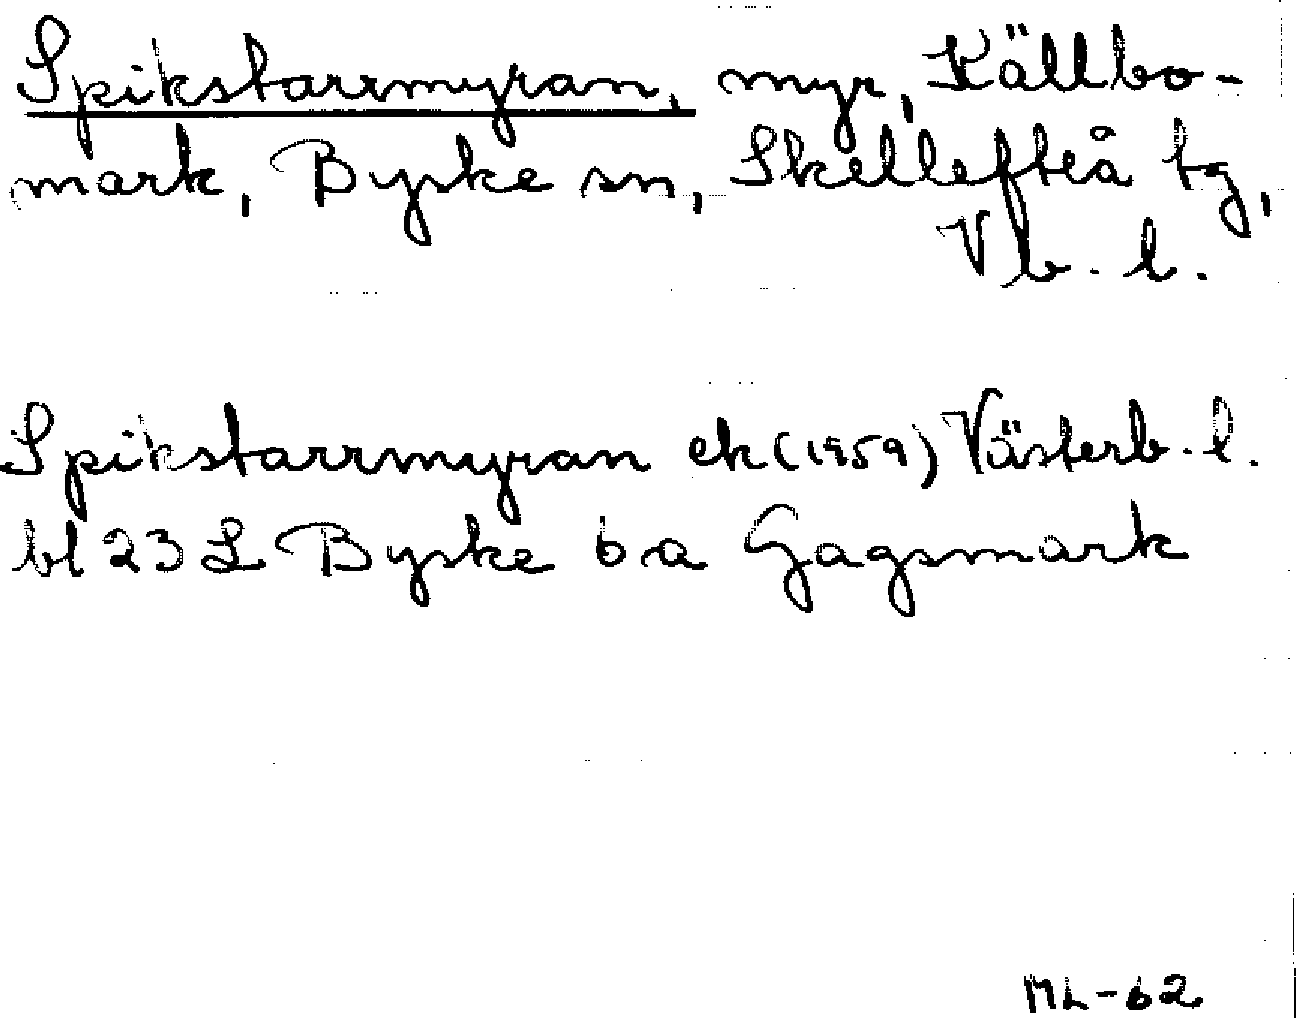 Spikstarrmyran, myr, Källbo-
mark, Byske sn, Skellefteå tg,
Vb. l.
Spikstarrmyran ek (1959) Västerb. l.
bl 23 L Byske 6 a Gagsmark
ML-62